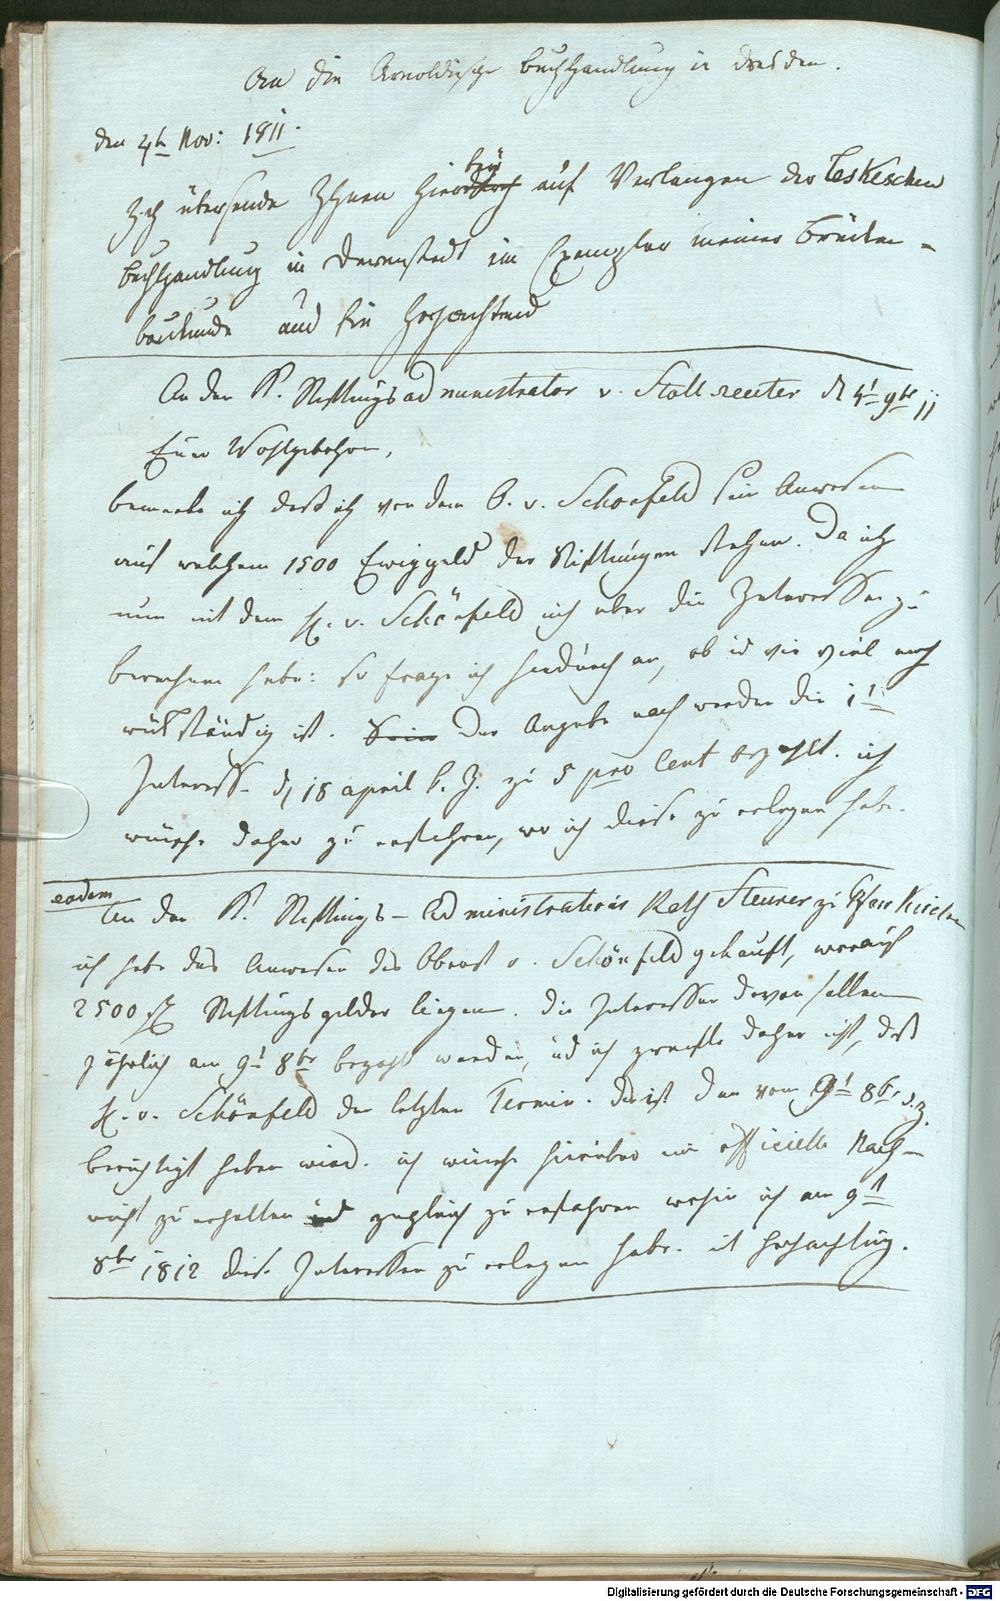 An die Arnoldische Buchhandlung in Dresden.
den 4t Nov: 1811.
bei
Ich übersende Ihnen hierdurch auf Verlangen der Leskeschen
Buchhandlung in Darmstadt ein Exemplar meiner Brücken-
baukunde und bin hochachtend
An den K. Stiftungsadministrator v. Stollreuter d 4t 9br 11
Euer Wohlgebohren,
bemerke ich daß ich von dem B. v. Schönfeld sein Anwesen
auf welchem 1500 Ewiggeld der Stiftungen stehen. Da ich
nun mit dem H. v. Schönfeld mich über die Interessen zu
berechnen habe: so frage ich hiedurch an, ob u wie viel noch
rückständig ist. Sein Der Angabe nach werden die 1t
Interess. d 18 april l. J. zu 5 pro Cent bezahlt. ich
wünsche daher zu erfahren, wo ich diese zu erlegen habe.
eodem
An den K. Stiftungs-Administrations Rath Steurer zu Pfarrkirchen
ich habe das Anwesen des Obrist v. Schönfeld gekauft, worauf
2500 fl Stiftungsgelder liegen. die Interessen davon sollen
jährlich am 9t 8br bezahlt werden, und ich zweifle daher nicht, daß
H. v. Schönfeld den letzten Termin. das ist den vom 9t 8br d. J.
berichtigt haben wird. ich wünsche hierüber eine officielle Nach-
richt zu erhalten und zugleich zu erfahren wohin ich am 9t
8br 1812 diese Interessen zu erlegen habe. mit Hochachtung.
Digitalisierung gefördert durch die Deutsche Forschungsgemeinschaft - DFG